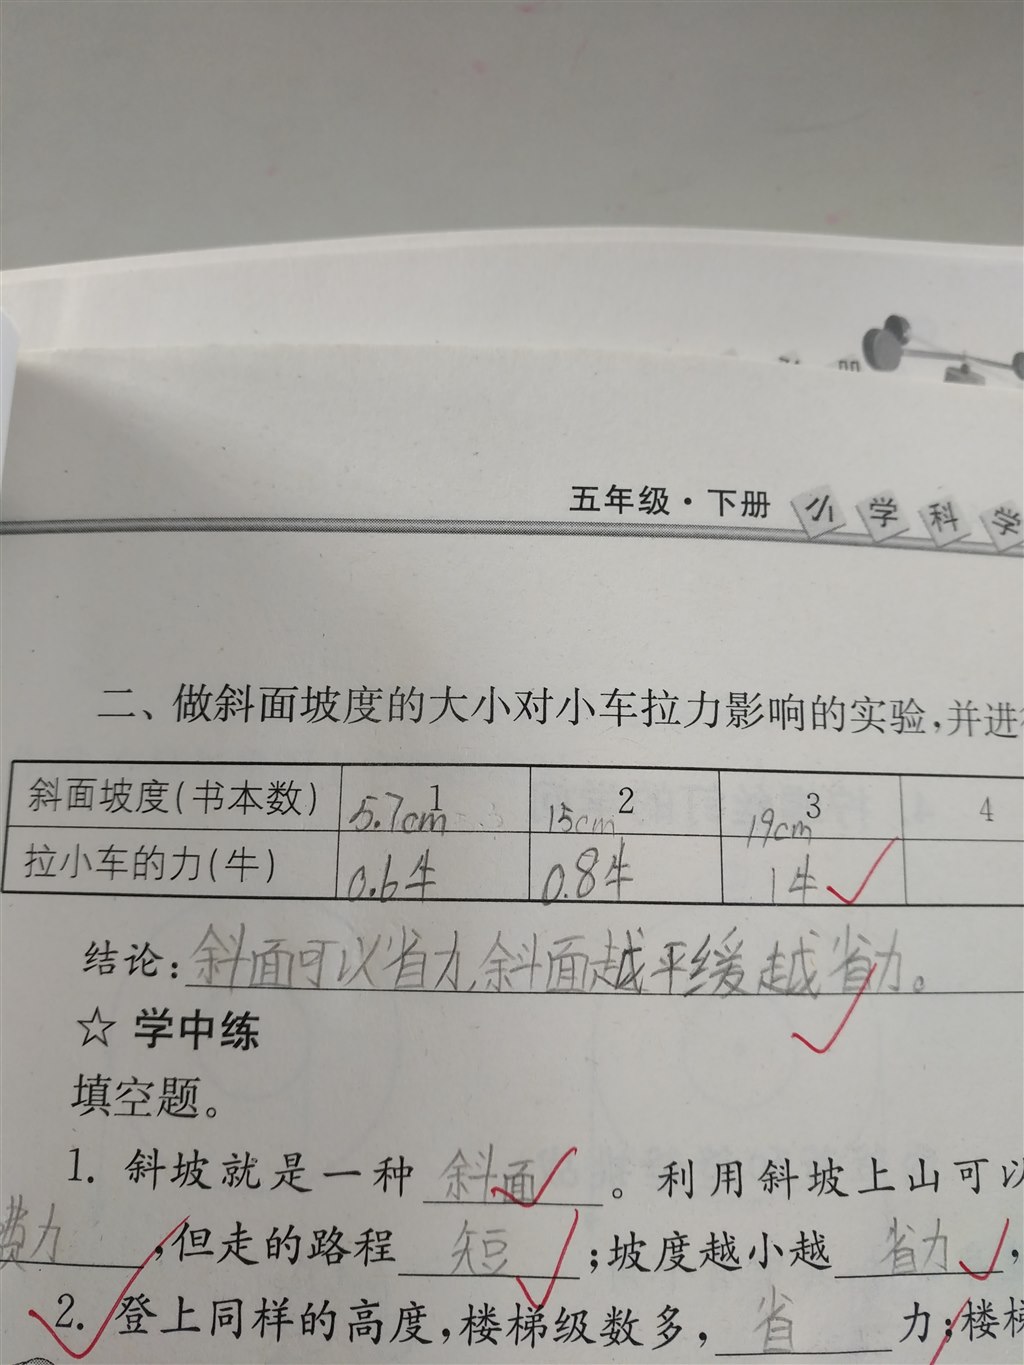 五年级·下册 小学科学
二、做斜面坡度的大小对小车拉力影响的实验，并进
斜面坡度(书本数) 5.7cm 1 15cm 2 19cm 3 4
拉小车的力(牛) 0.6牛 0.8牛 1牛
结论：斜面可以省力，斜面越平缓越省力。
☆ 学中练
填空题。
1. 斜坡就是一种 斜面 。利用斜坡上山可以
费力，但走的路程 短 ；坡度越小越 省力，
2. 登上同样的高度，楼梯级数多， 省 力；楼梯